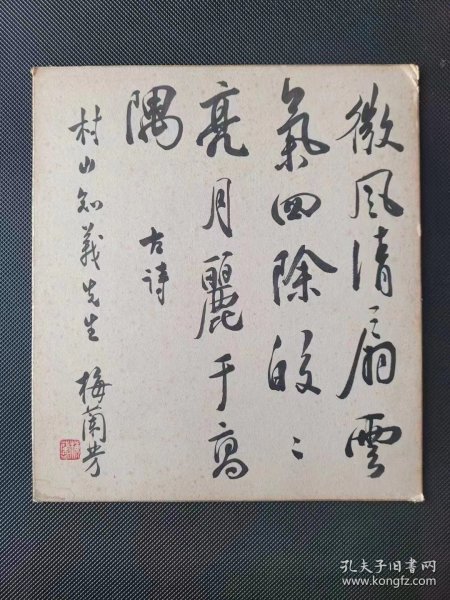 微風清扇雲
氣四除皎〻
亮月麗于高
隅
古詩
村山知義先生 梅蘭芳
孔夫子旧书网
www.kongfz.com